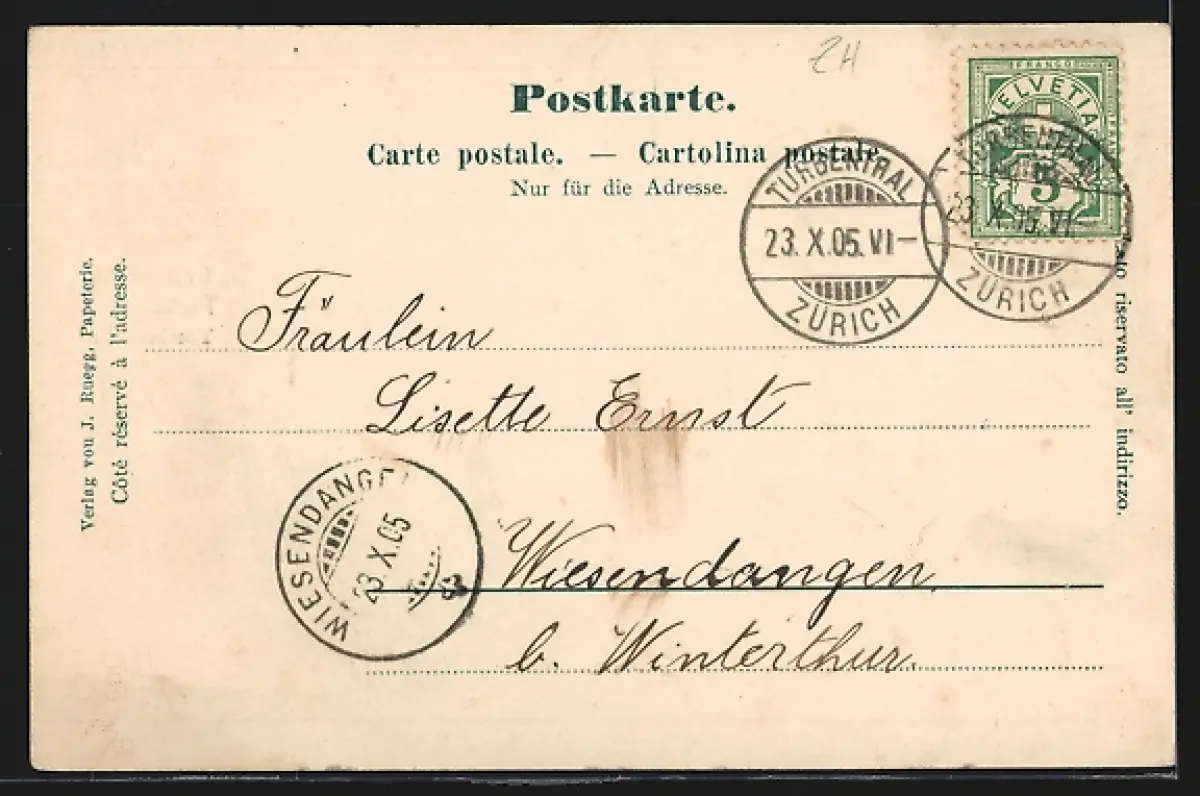 ZH
Postkarte.
Carte postale. — Cartolina postale
Nur für die Adresse.
FRANCO
HELVETIA
5
TURBENTHAL
23. X. 05. VI–
ZÜRICH
TURBENTHAL
23. X. 05. VI–
ZÜRICH
Verlag von J. Ruegg, Papeterie.
Côté réservé à l'adresse.
riservato all' indirizzo.
Fräulein
Lisette Ernst
WIESENDANGE
23. X. 05
Wiesendangen
b. Winterthur.